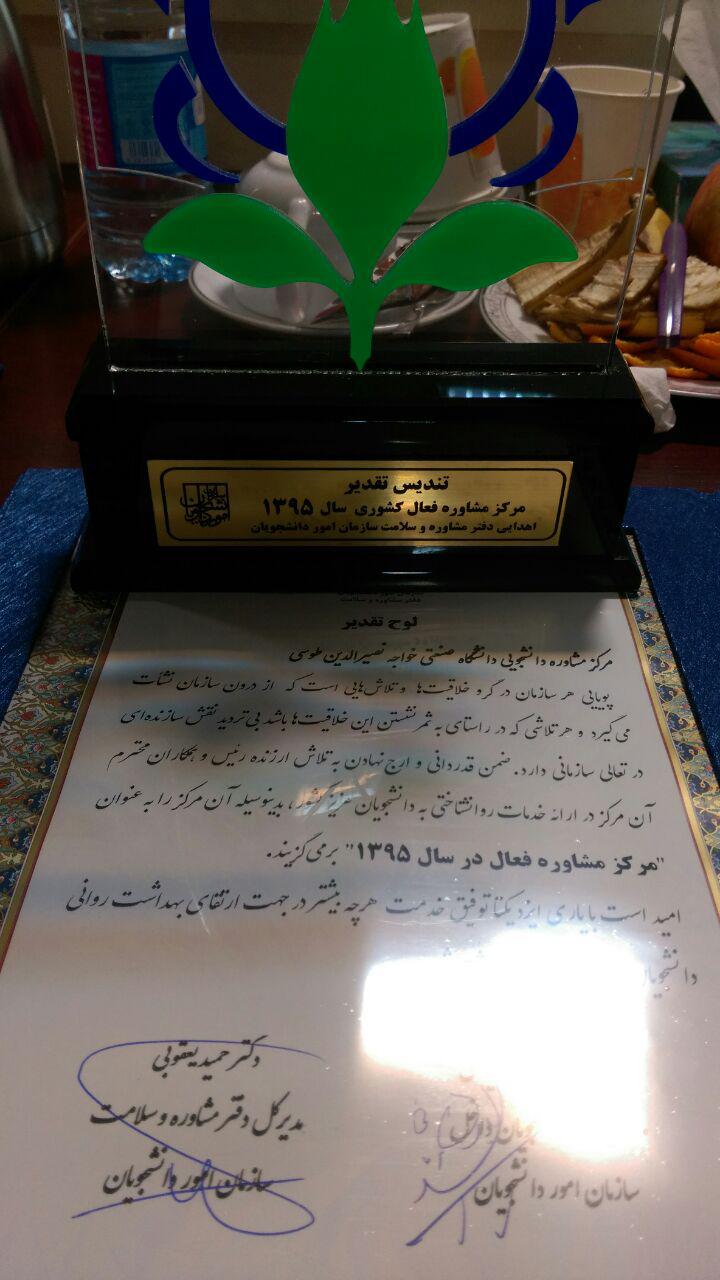 تندیس تقدیر
مرکز مشاوره فعال کشوری سال ۱۳۹۵
اهدایی دفتر مشاوره و سلامت سازمان امور دانشجویان
سازمان امور دانشجویان
دفتر مشاوره و سلامت
لوح تقدیر
مرکز مشاوره دانشجویی دانشگاه صنعتی خواجه نصیرالدین طوسی
پویایی هر سازمان در گرو خلاقیت‌ها و تلاش‌هایی است که از درون سازمان نشأت
می‌گیرد و هر تلاشی که در راستای به ثمر نشستن این خلاقیت‌ها باشد بی تردید نقش سازنده‌ای
در تعالی سازمانی دارد. ضمن قدردانی و ارج نهادن به تلاش ارزنده رئیس و همکاران محترم
آن مرکز در ارائه خدمات روانشناختی به دانشجویان عزیز کشور، بدینوسیله آن مرکز را به عنوان
"مرکز مشاوره فعال در سال ۱۳۹۵" برمی‌گزیند.
امید است با یاری ایزد یکتا توفیق خدمت هرچه بیشتر در جهت ارتقای بهداشت روانی
دکتر حمید یعقوبی
مدیرکل دفتر مشاوره و سلامت
سازمان امور دانشجویان
داخل
سازمان امور دانشجویان